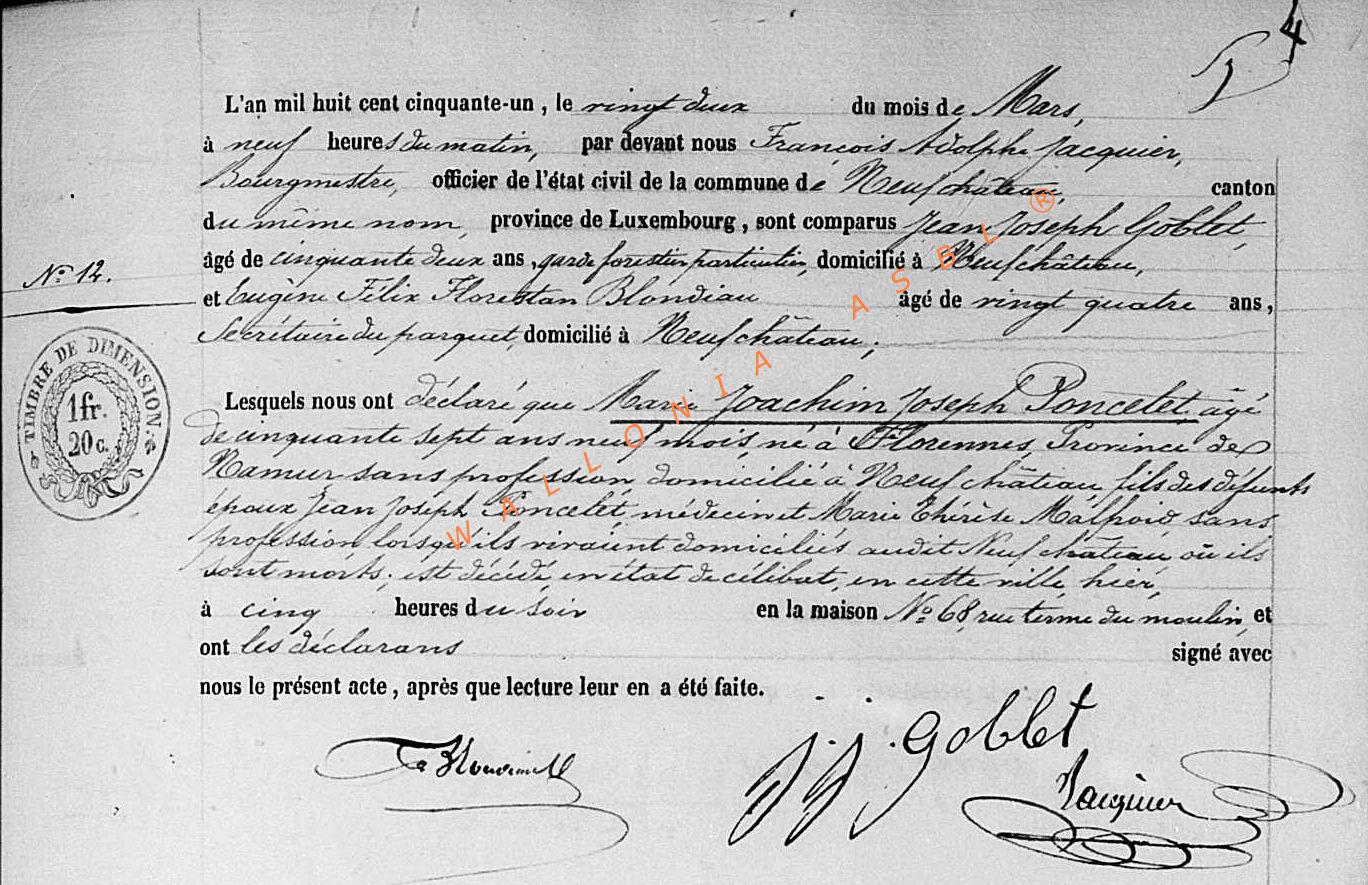 4
L'an mil huit cent cinquante-un, le vingt deux du mois de Mars,
à neuf heures du matin, par devant nous François Adolphe Jacquier,
Bourgmestre, officier de l'état civil de la commune de Neufchâteau, canton
du même nom, province de Luxembourg, sont comparus Jean Joseph Goblet,
âgé de cinquante deux ans, garde forestier particulier, domicilié à Neufchâteau,
N° 12.
et Eugène Félix Florestan Blondiau âgé de vingt quatre ans,
Secrétaire du parquet domicilié à Neufchâteau;
TIMBRE DE DIMENSION.
1 fr.
20 c.
Lesquels nous ont déclaré que Marie Joachim Joseph Poncelet, âgé
de cinquante sept ans neuf mois, né à Florennes, Province de
Namur sans profession domicilié à Neufchâteau, fils des défunts
époux Jean Joseph Poncelet, médecin et Marie Thérèse Malpoid sans
profession lorsqu'ils vivaient domiciliés audit Neufchâteau où ils
sont morts; est décédé, en état de célibat, en cette ville, hier,
à cinq heures du soir en la maison N° 68, rue terme du moulin, et
ont les déclarans signé avec
nous le présent acte, après que lecture leur en a été faite.
J. J. Goblet
Jacquier
WALLONIA ASBL ®